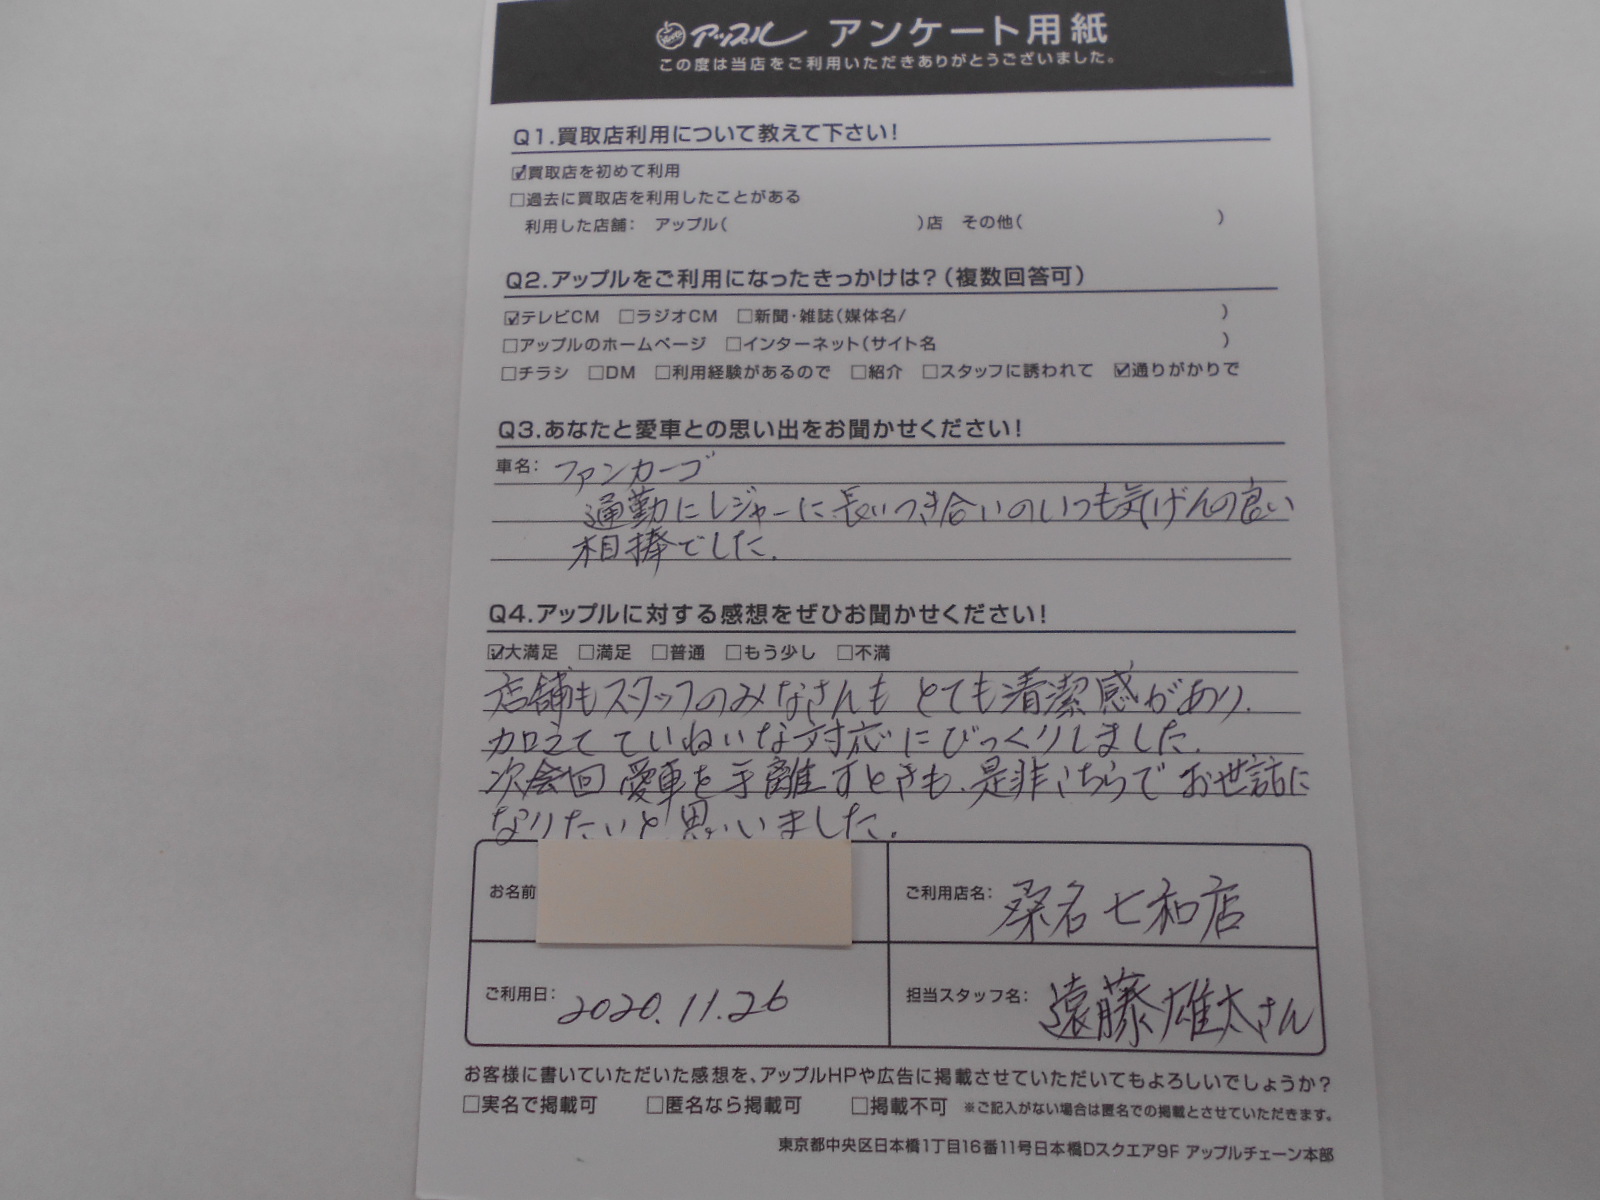 アップル アンケート用紙
この度は当店をご利用いただきありがとうございました。
Q1.買取店利用について教えて下さい!
☑買取店を初めて利用
□過去に買取店を利用したことがある
利用した店舗: アップル( )店 その他( )
Q2.アップルをご利用になったきっかけは?(複数回答可)
☑テレビCM □ラジオCM □新聞・雑誌(媒体名/ )
□アップルのホームページ □インターネット(サイト名 )
□チラシ □DM □利用経験があるので □紹介 □スタッフに誘われて ☑通りがかりで
Q3.あなたと愛車との思い出をお聞かせください!
車名: ファンカーゴ
通勤にレジャーに長いつき合いのいつも気げんの良い
相棒でした.
Q4.アップルに対する感想をぜひお聞かせください!
☑大満足 □満足 □普通 □もう少し □不満
店舗もスタッフのみなさんもとても清潔感があり.
加えてていねいな対応にびっくりしました.
次回愛車を手離すときも、是非こちらでお世話に
なりたいと思いました.
お名前
ご利用店名: 桑名七和店
ご利用日: 2020.11.26
担当スタッフ名: 遠藤雄太さん
お客様に書いていただいた感想を、アップルHPや広告に掲載させていただいてもよろしいでしょうか?
□実名で掲載可 □匿名なら掲載可 □掲載不可 ※ご記入がない場合は匿名での掲載とさせていただきます。
東京都中央区日本橋1丁目16番11号日本橋Dスクエア9F アップルチェーン本部